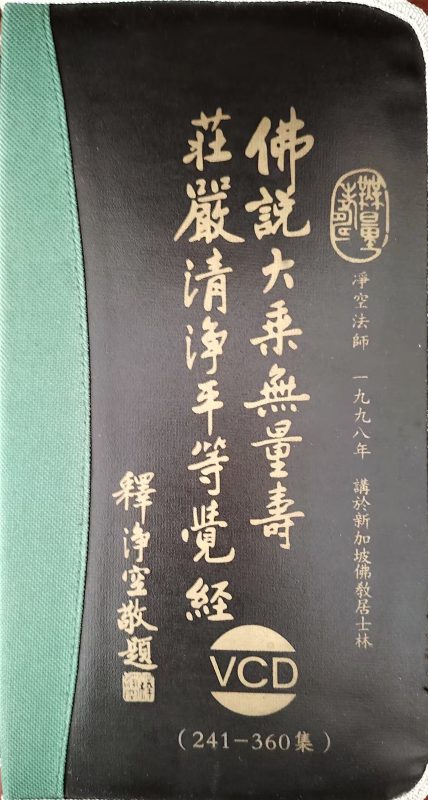 無量壽
淨空法師 一九九八年 講於新加坡佛教居士林
佛説大乘無量壽
莊嚴清淨平等覺經
釋淨空敬題
VCD
(241-360集)